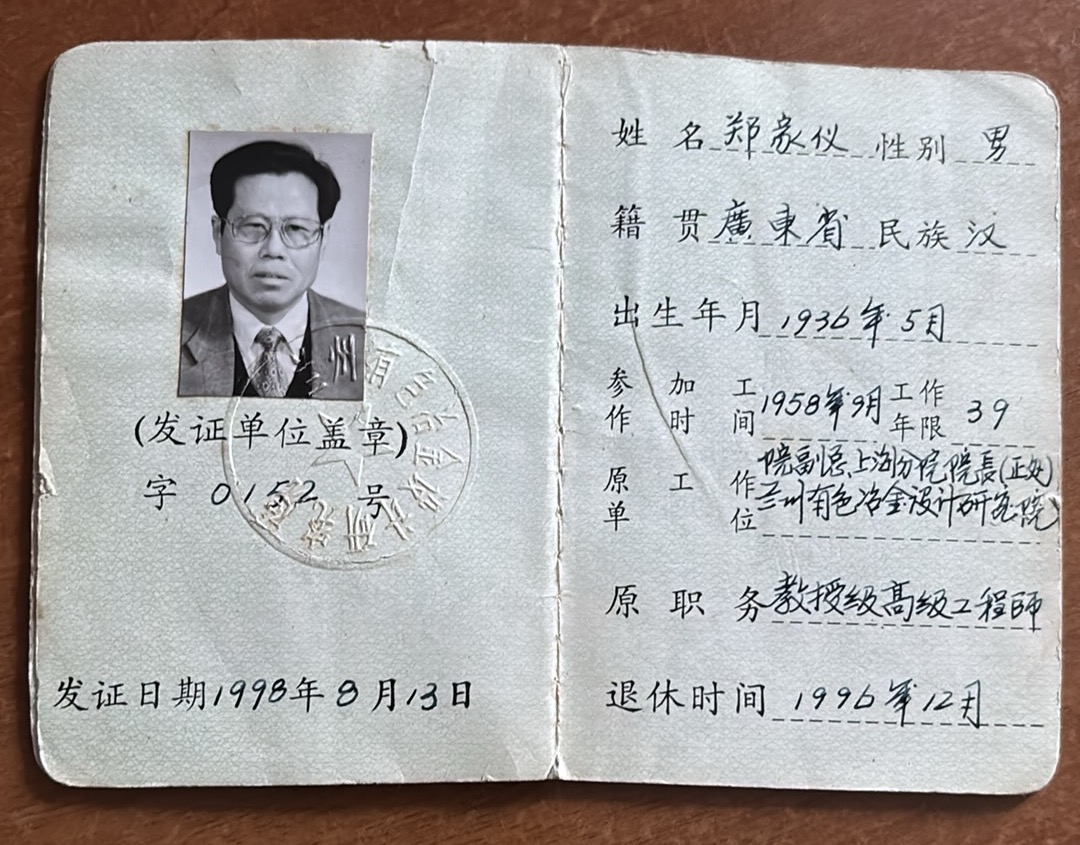 (发证单位盖章)
字 0152 号
发证日期1998年8月13日
姓 名 郑家仪 性别 男
籍 贯 廣東省 民族 汉
出生年月 1936年5月
参加工作时间 1958年9月 工作年限 39
原工作单位 院副总上海分院院長(正处)
兰州有色冶金设计研究院
原职务 教授级高级工程师
退休时间 1996年12月